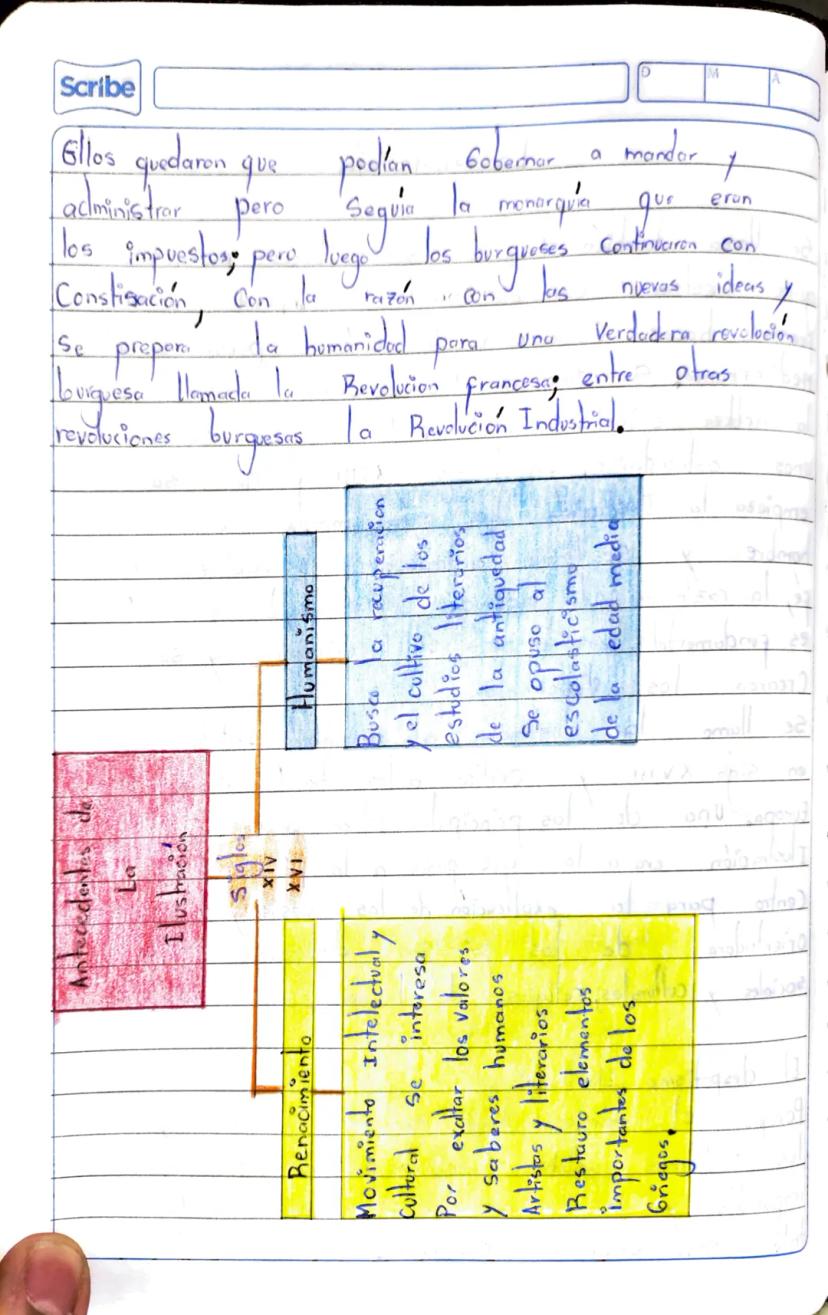 Scribe
D M A
Ellos quedaron que podían Gobernar a mandar y
administrar pero Seguía la monarquía que eran
los impuestos; pero luego los burgueses Continuaron con
Constigación, Con la razón con las nuevas ideas y
Se prepara la humanidad para una Verdadera revolución
burguesa llamada la Revolución francesa; entre otras
revoluciones burguesas la Revolución Industrial.
Antecedentes de
La
Ilustración
Siglos
XIV
XVI
Renacimiento
Movimiento Intelectual y
Cultural Se interesa
Por exaltar los Valores
y Saberes humanos
Artistas y literarios
Restauro elementos
importantes de los
Griegos.
Humanismo
Busca la recuperacion
y el cultivo de los
estudios literarios
de la antiguedad
Se opuso al
escolasticismo
de la edad media